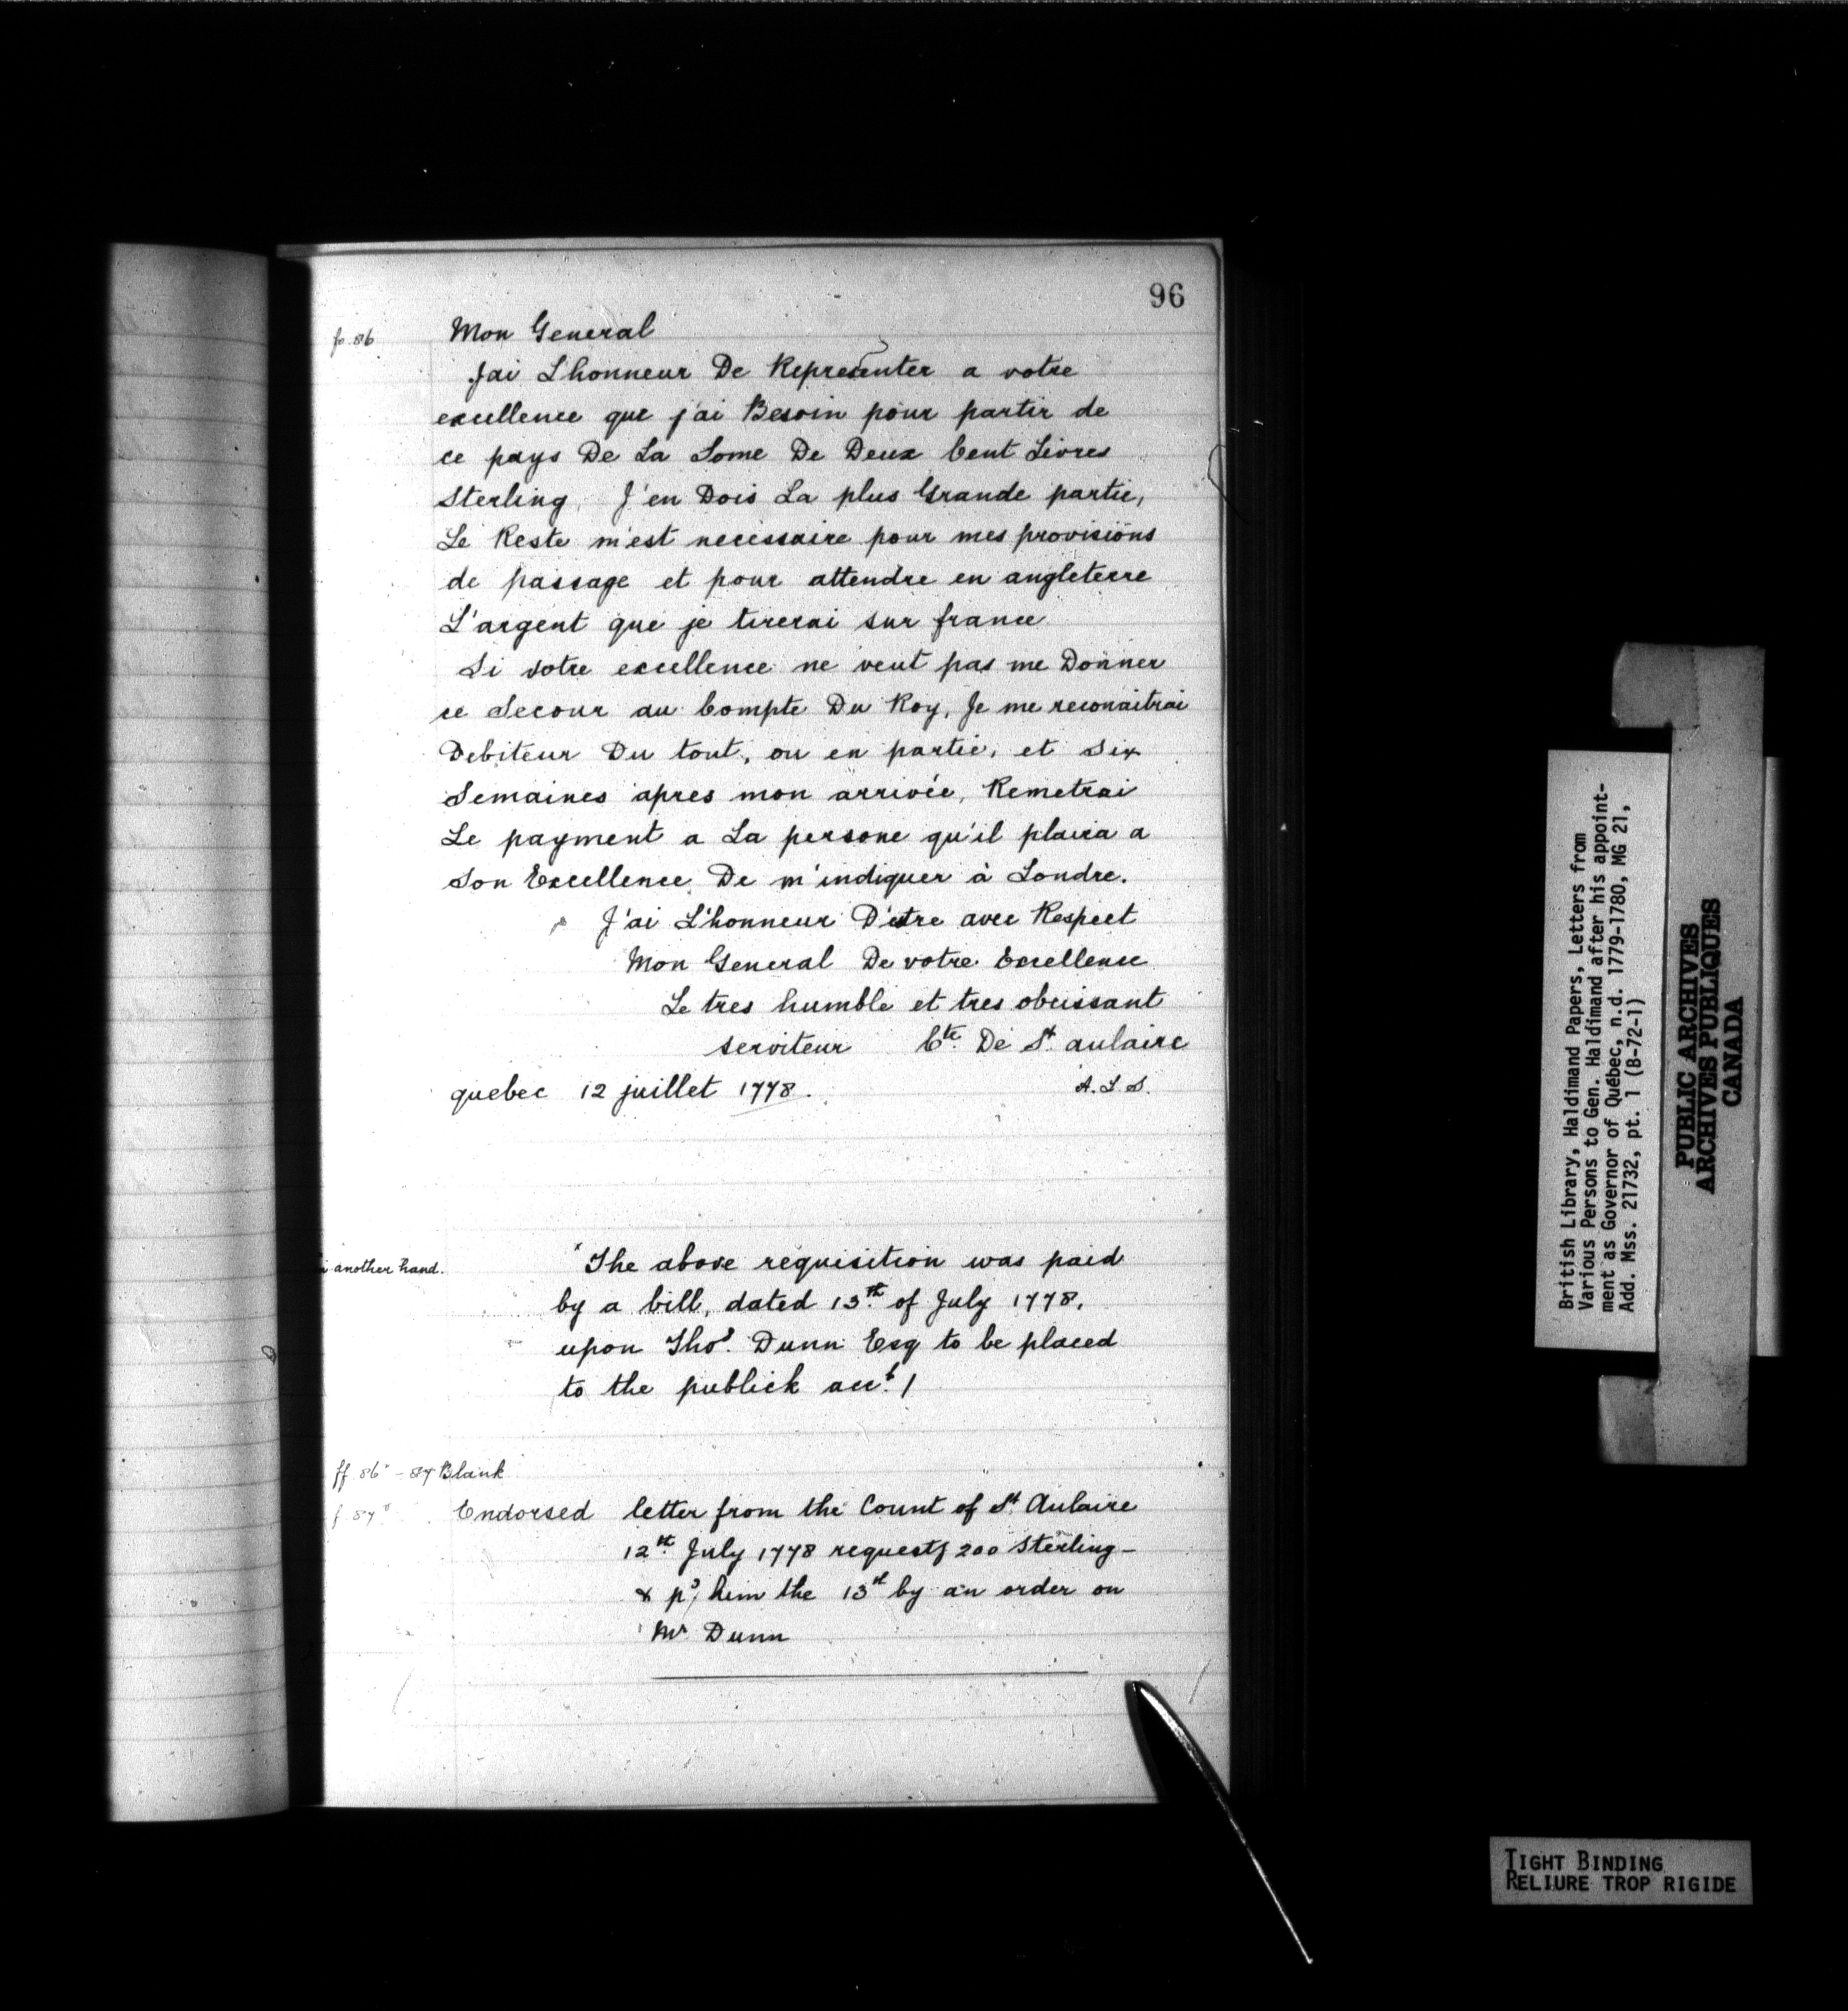 96
fo. 86
Mon General
Jai L'honneur De Representer a votre
excellence que j'ai Besoin pour partir de
ce pays De La Some De Deux Cent Livres
Sterling, J'en Dois La plus Grande partie,
Le Reste m'est necessaire pour mes provisions
de passage et pour attendre en angleterre
L'argent que je tirerai sur france
Si votre excellence ne veut pas me Donner
ce Secour au Compte Du Roy, Je me reconaitrai
Debiteur Du tout, ou en partie, et Six
Semaines apres mon arrivée, Remetrai
Le payment a La persone qu'il plaira a
Son Excellence De m'indiquer à Londre.
J'ai L'honneur D'etre avec Respect
Mon General De votre Excellence
Le tres humble et tres obeissant
serviteur Cte. De St. aulaire
quebec 12 juillet 1778. A.L.S.
another hand.
The above requisition was paid
by a bill, dated 13th. of July 1778,
upon Thos. Dunn Esq to be placed
to the publick acct. /
ff. 86v - 87 Blank
f 87v Endorsed letter from the Count of St. Aulaire
12th. July 1778 requestg 200 Sterling -
& pd, him the 13th by an order on
Mr Dunn
British Library, Haldimand Papers, Letters from
Various Persons to Gen. Haldimand after his appoint-
ment as Governor of Québec, n.d. 1779-1780, MG 21,
Add. Mss. 21732, pt. 1 (B-72-1)
PUBLIC ARCHIVES
ARCHIVES PUBLIQUES
CANADA
TIGHT BINDING
RELIURE TROP RIGIDE